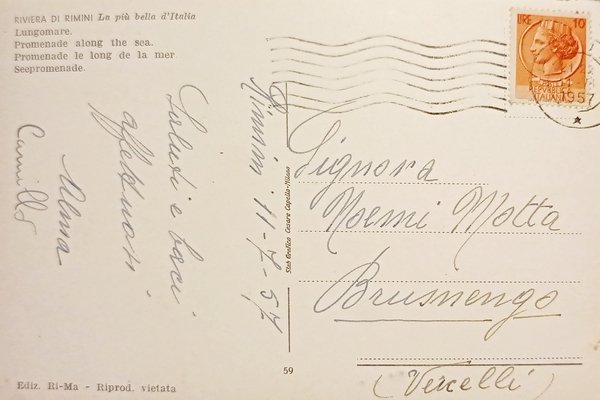 RIVIERA DI RIMINI La più bella d'Italia
Lungomare.
Promenade along the sea.
Promenade le long de la mer
Seepromenade.
LIRE 10
1957
Rimini 11-7-57
Saluti e baci
affettuosi
Alma
Camillo
Stab Grafico Cesare Capello-Milano
Signora
Noemi Motta
Brusnengo
(Vercelli)
59
Ediz. Ri-Ma - Riprod. vietata